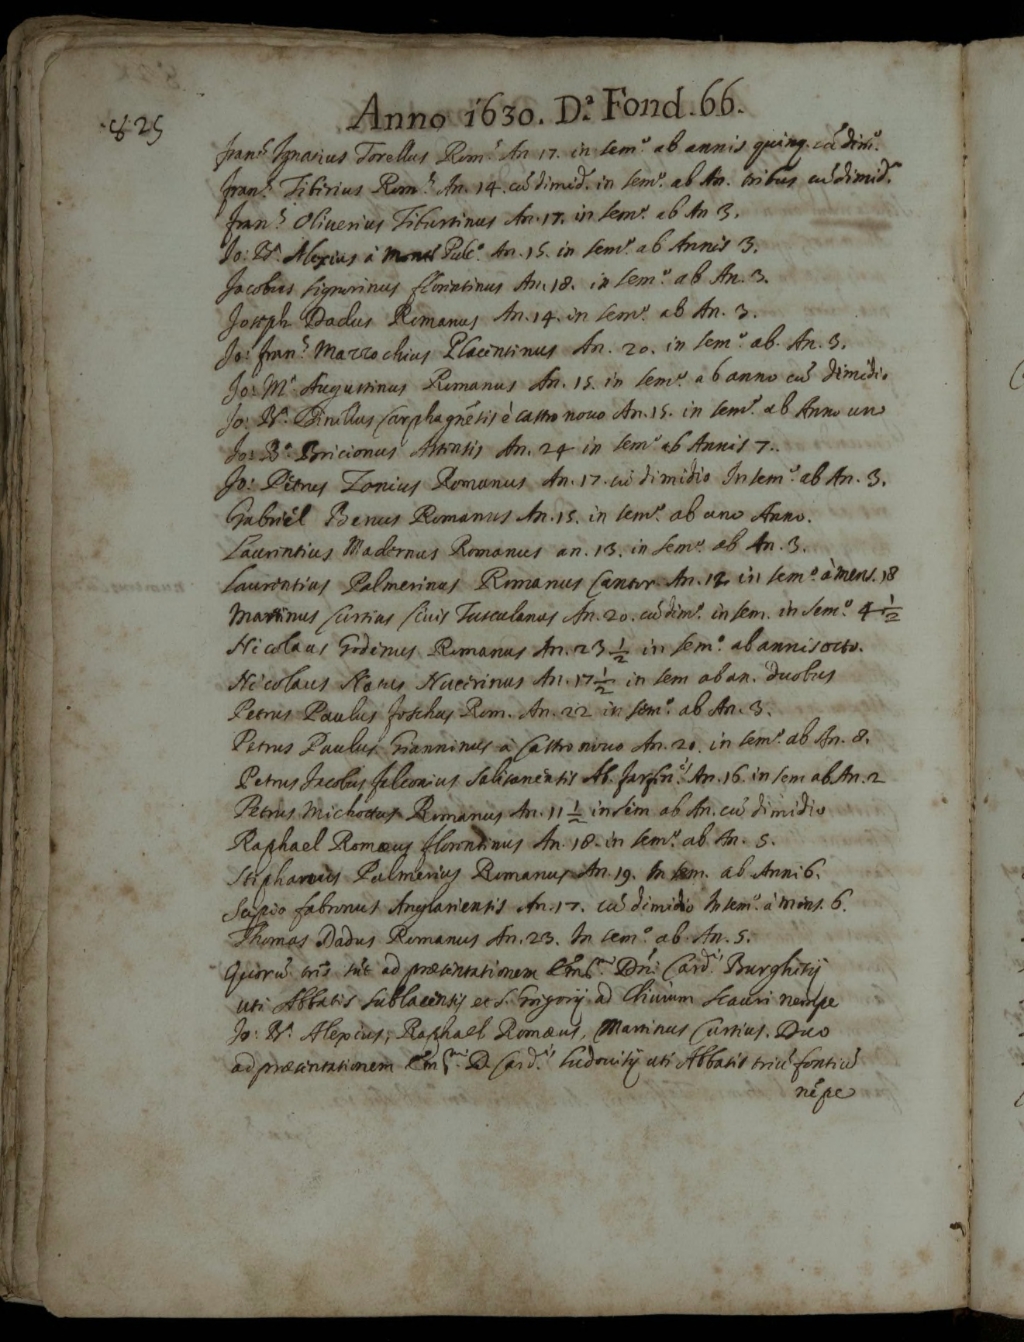 Anno 1630. D.ª Fond. 66.
825
Fran.s Ignatius Torellus Rom.s An 17. in sem.º ab annis quinq. cū dim.º
Fran.s Tiberius Rom.s An. 14. cū dimid. in sem.º ab An. tribus cū dimid.º
Fran.s Oliverius Tiburtinus An. 17. in sem.º ab An 3.
Jo: B.ª Alexius à Monte Pulc.º An. 15. in sem.º ab Annis 3.
Jacobus Signorinus florentinus An. 18. in sem.º ab An. 3.
Joseph Dadus Romanus An. 14. in sem.º ab An. 3.
Jo: fran.s Mazzochius Placentinus An. 20. in sem.º ab. An. 3.
Jo: M.ª Augustinus Romanus An. 15. in sem.º ab anno cū dimidio
Jo: B.ª è Castro novo An. 15. in sem.º ab Anno uno
Jo: B.ª Bricionus An. 24 in sem.º ab Annis 7.
Jo: Petrus Zonius Romanus An. 17. cū dimidio In sem.º ab An. 3.
Gabriel Benus Romanus An. 15. in sem.º ab uno Anno.
Laurentius Madernus Romanus an. 13. in sem.º ab An. 3.
Laurentius Palmerinus Romanus Cantor. An. 12 in sem.º à mens. 18
Martinus Curtius Civis Tusculanus An. 20. cū dim.º in sem. in sem.º 4 1/2
Nicolaus Godinus Romanus An. 23 1/2 in sem.º ab annis octo.
Nicolaus Nucerinus An. 17 1/2 in sem ab an. duobus
Petrus Paulus Foschus Rom. An. 22 in sem.º ab An. 3.
Petrus Paulus Gianninus à Castro novo An. 20. in sem.º ab An. 8.
Petrus Jacobus falconius An. 16. in sem ab An. 2
Petrus Romanus An. 11 1/2 in sem ab An. cū dimidio
Raphael Romæus florentinus An. 18. in sem.º ab An. 5.
Stephanus Palmerius Romanus An. 19. In sem. ab Anni 6.
Scipio fabronus Anglariensis An. 17. cū dimidio In sem.º à mens. 6.
Thomas Dadus Romanus An. 23. In sem.º ab An. 5.
Quorū tres sūt ad præsentationem Em.mi Dñi Card.lis Burghesij
uti Abbatis Sublacensis et S. Gregorij ad Clivum Scauri nempe
Jo: B.ª Alexius, Raphael Romæus, Martinus Curtius. Duo
ad præsentationem Em.mi D. Card.lis Ludovisij uti Abbatis triū fontiū
nēpe